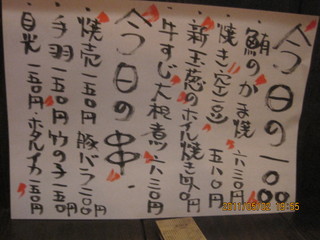 今日の一品
・鮪のかま焼 六三〇円
・焼き空豆 五八〇円
・新玉葱のホイル焼き
・牛すじ大根煮 六三〇円
今日の串
・焼売 一五〇円 豚バラ 二〇〇円
・手羽 一五〇円 竹の子 一五〇円
・目光 一五〇円・ホタルイカ 一五〇円
2011/05/02